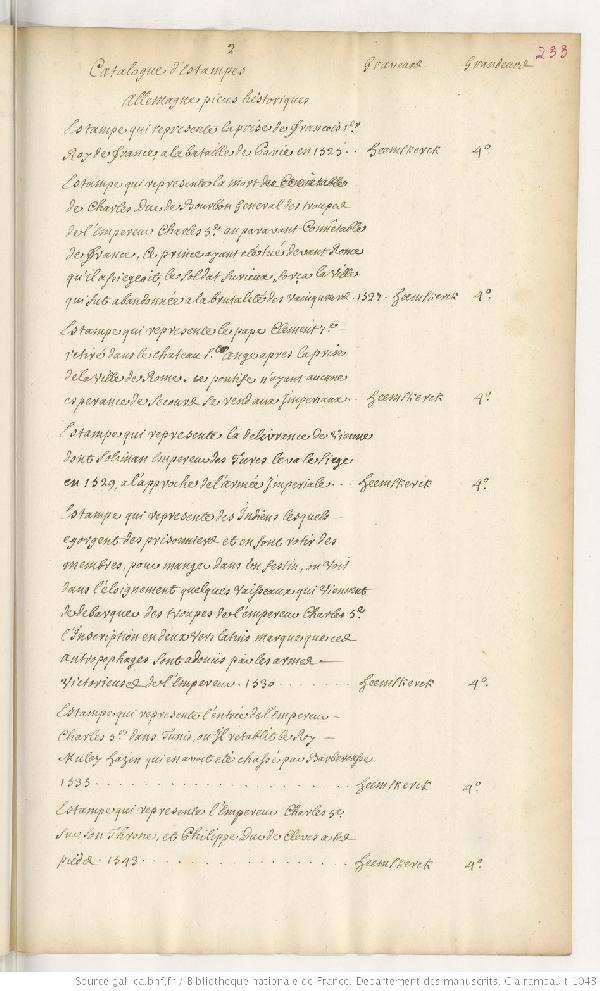 2
233
Catalogue d'Estampes Graveurs Grandeurs
Allemagne pieces historiques
Estampe qui represente la prise de francois 1er
Roy de france a la bataille de Pavie en 1525. . Heemskerck 4°
Estampe qui represente la mort
de Charles Duc de Bourbon General des troupes
de l'Empereur Charles 5e auparavant Connétable
de france, Ce prince ayant esté tué devant Rome
qu'il assiegeoit, le soldat furieux força la Ville
qui fut abandonnée a la brutalité des vainqueurs. 1527. Heemskerck 4°
Estampe qui represente le pape Clement 7e
retiré dans le chateau St Ange apres la prise
de la Ville de Rome. ce pontife n'ayant aucune
esperance de secours se rend aux Imperiaux. . Heemskerck 4°
Estampe qui represente la delivrence de Vienne
dont Soliman Empereur des Turcs leva le siege
en 1529, a l'approche de l'armée Imperiale. . . Heemskerck 4°
Estampe qui represente des Indiens lesquels
egorgent des prisonniers et en font rotir des
membres, pour manger dans un festin, on voit
dans l'éloignement quelques vaisseaux qui viennent
de debarquer des troupes de l'empereur Charles 5e
l'Inscription en deux vers latins marque que ces
antropophages sont adoucis par les armes
Victorieuses de l'Empereur. 1530 . . . . . . . Heemskerck 4°
Estampe qui represente l'entrée de l'Empereur
Charles 5e dans Tunis, ou Il retablit le Roy
Muley Hazen qui en avoit eté chassé par Barberousse
1535. . . . . . . . . . . . . . . . . . Heemskerck 4°
Estampe qui represente l'Empereur Charles 5e
sur son Throne, et Philippe Duc de Cleves a ses
pieds. 1543 . . . . . . . . . . . . . . Heemskerck 4°
Source gallica.bnf.fr / Bibliothèque nationale de France. Département des manuscrits. Clairambault 1048